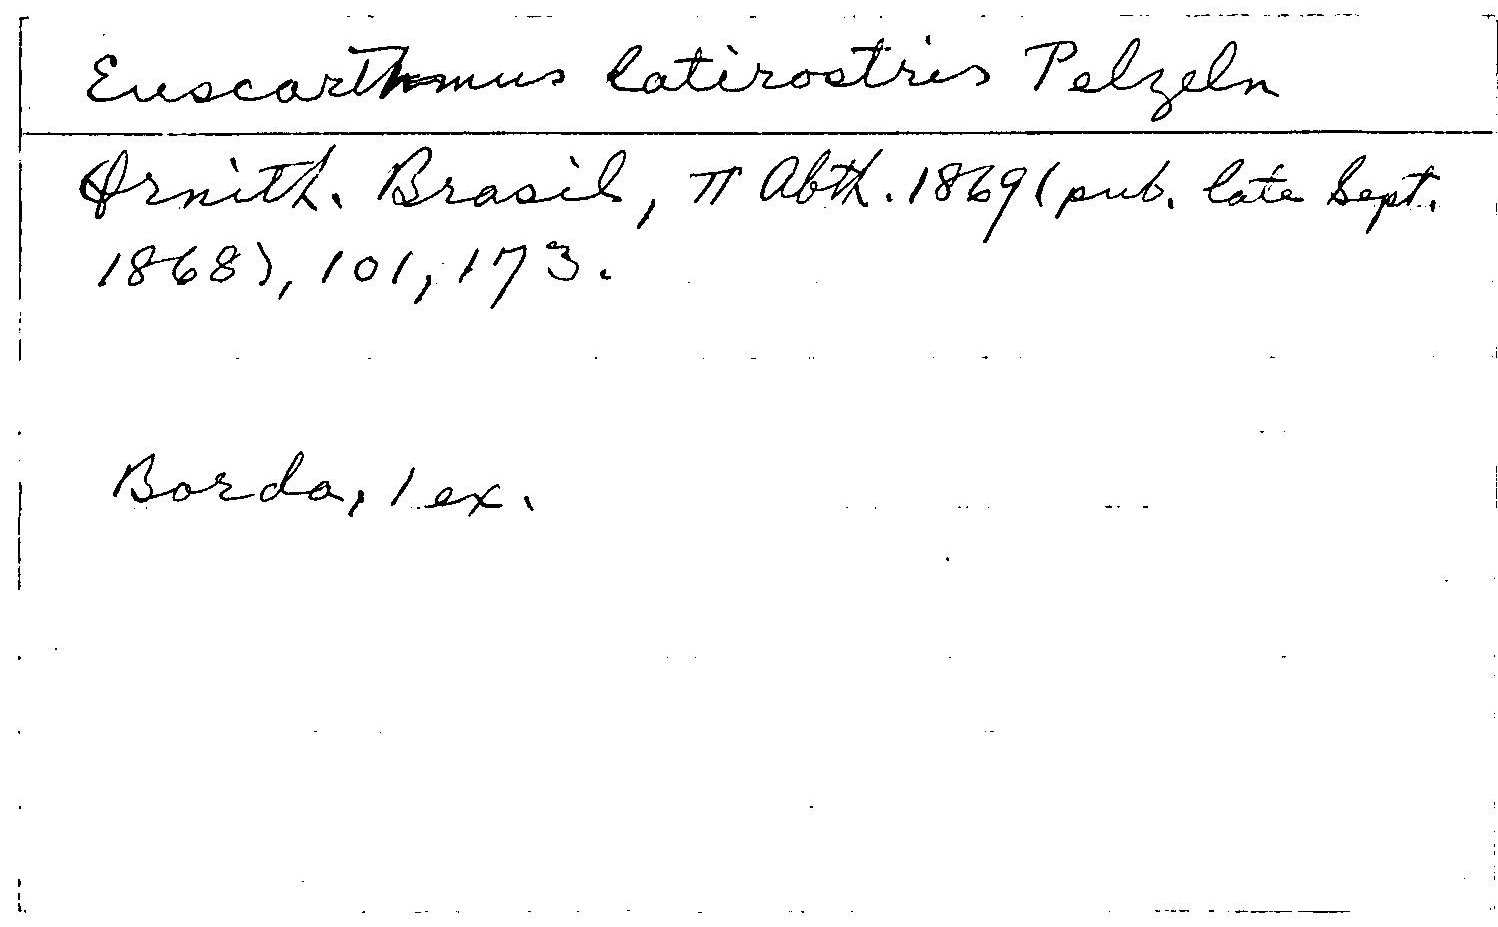 Euscarthmus latirostris Pelzeln
Ornith. Brasil, II Abth. 1869 (pub. late Sept.
1868), 101, 173.
Borda, 1 ex.